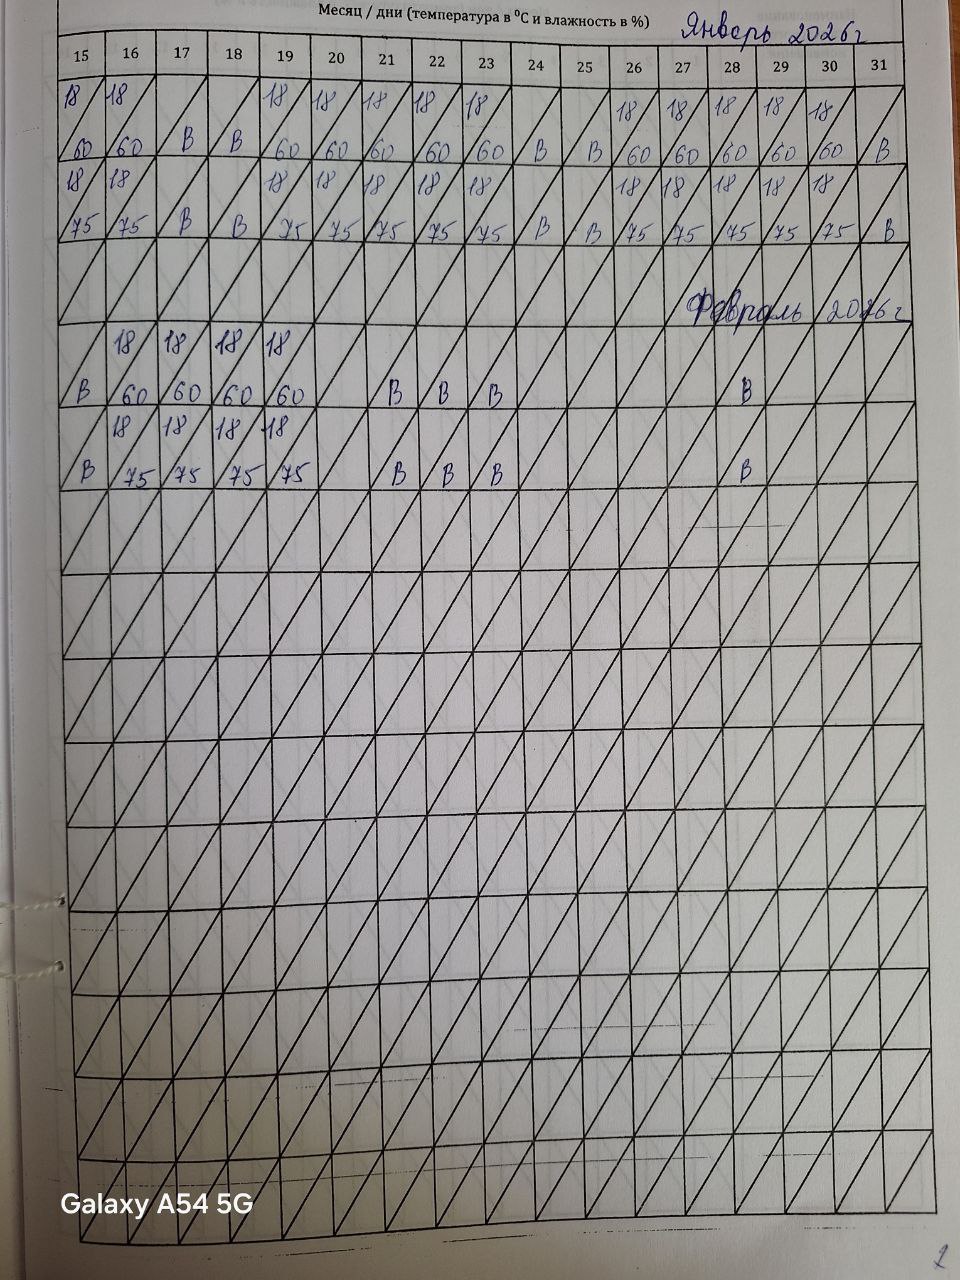 Месяц / дни (температура в ⁰С и влажность в %)
Январь 2026г
15 16 17 18 19 20 21 22 23 24 25 26 27 28 29 30 31
18 18 18 18 18 18 18 18 18 18 18 18
60 60 В В 60 60 60 60 60 В В 60 60 60 60 60 В
18 18 18 18 18 18 18 18 18 18 18 18
75 75 В В 75 75 75 75 75 В В 75 75 75 75 75 В
Февраль 2026г
18 18 18 18
В 60 60 60 60 В В В В
18 18 18 18
В 75 75 75 75 В В В В
Galaxy A54 5G